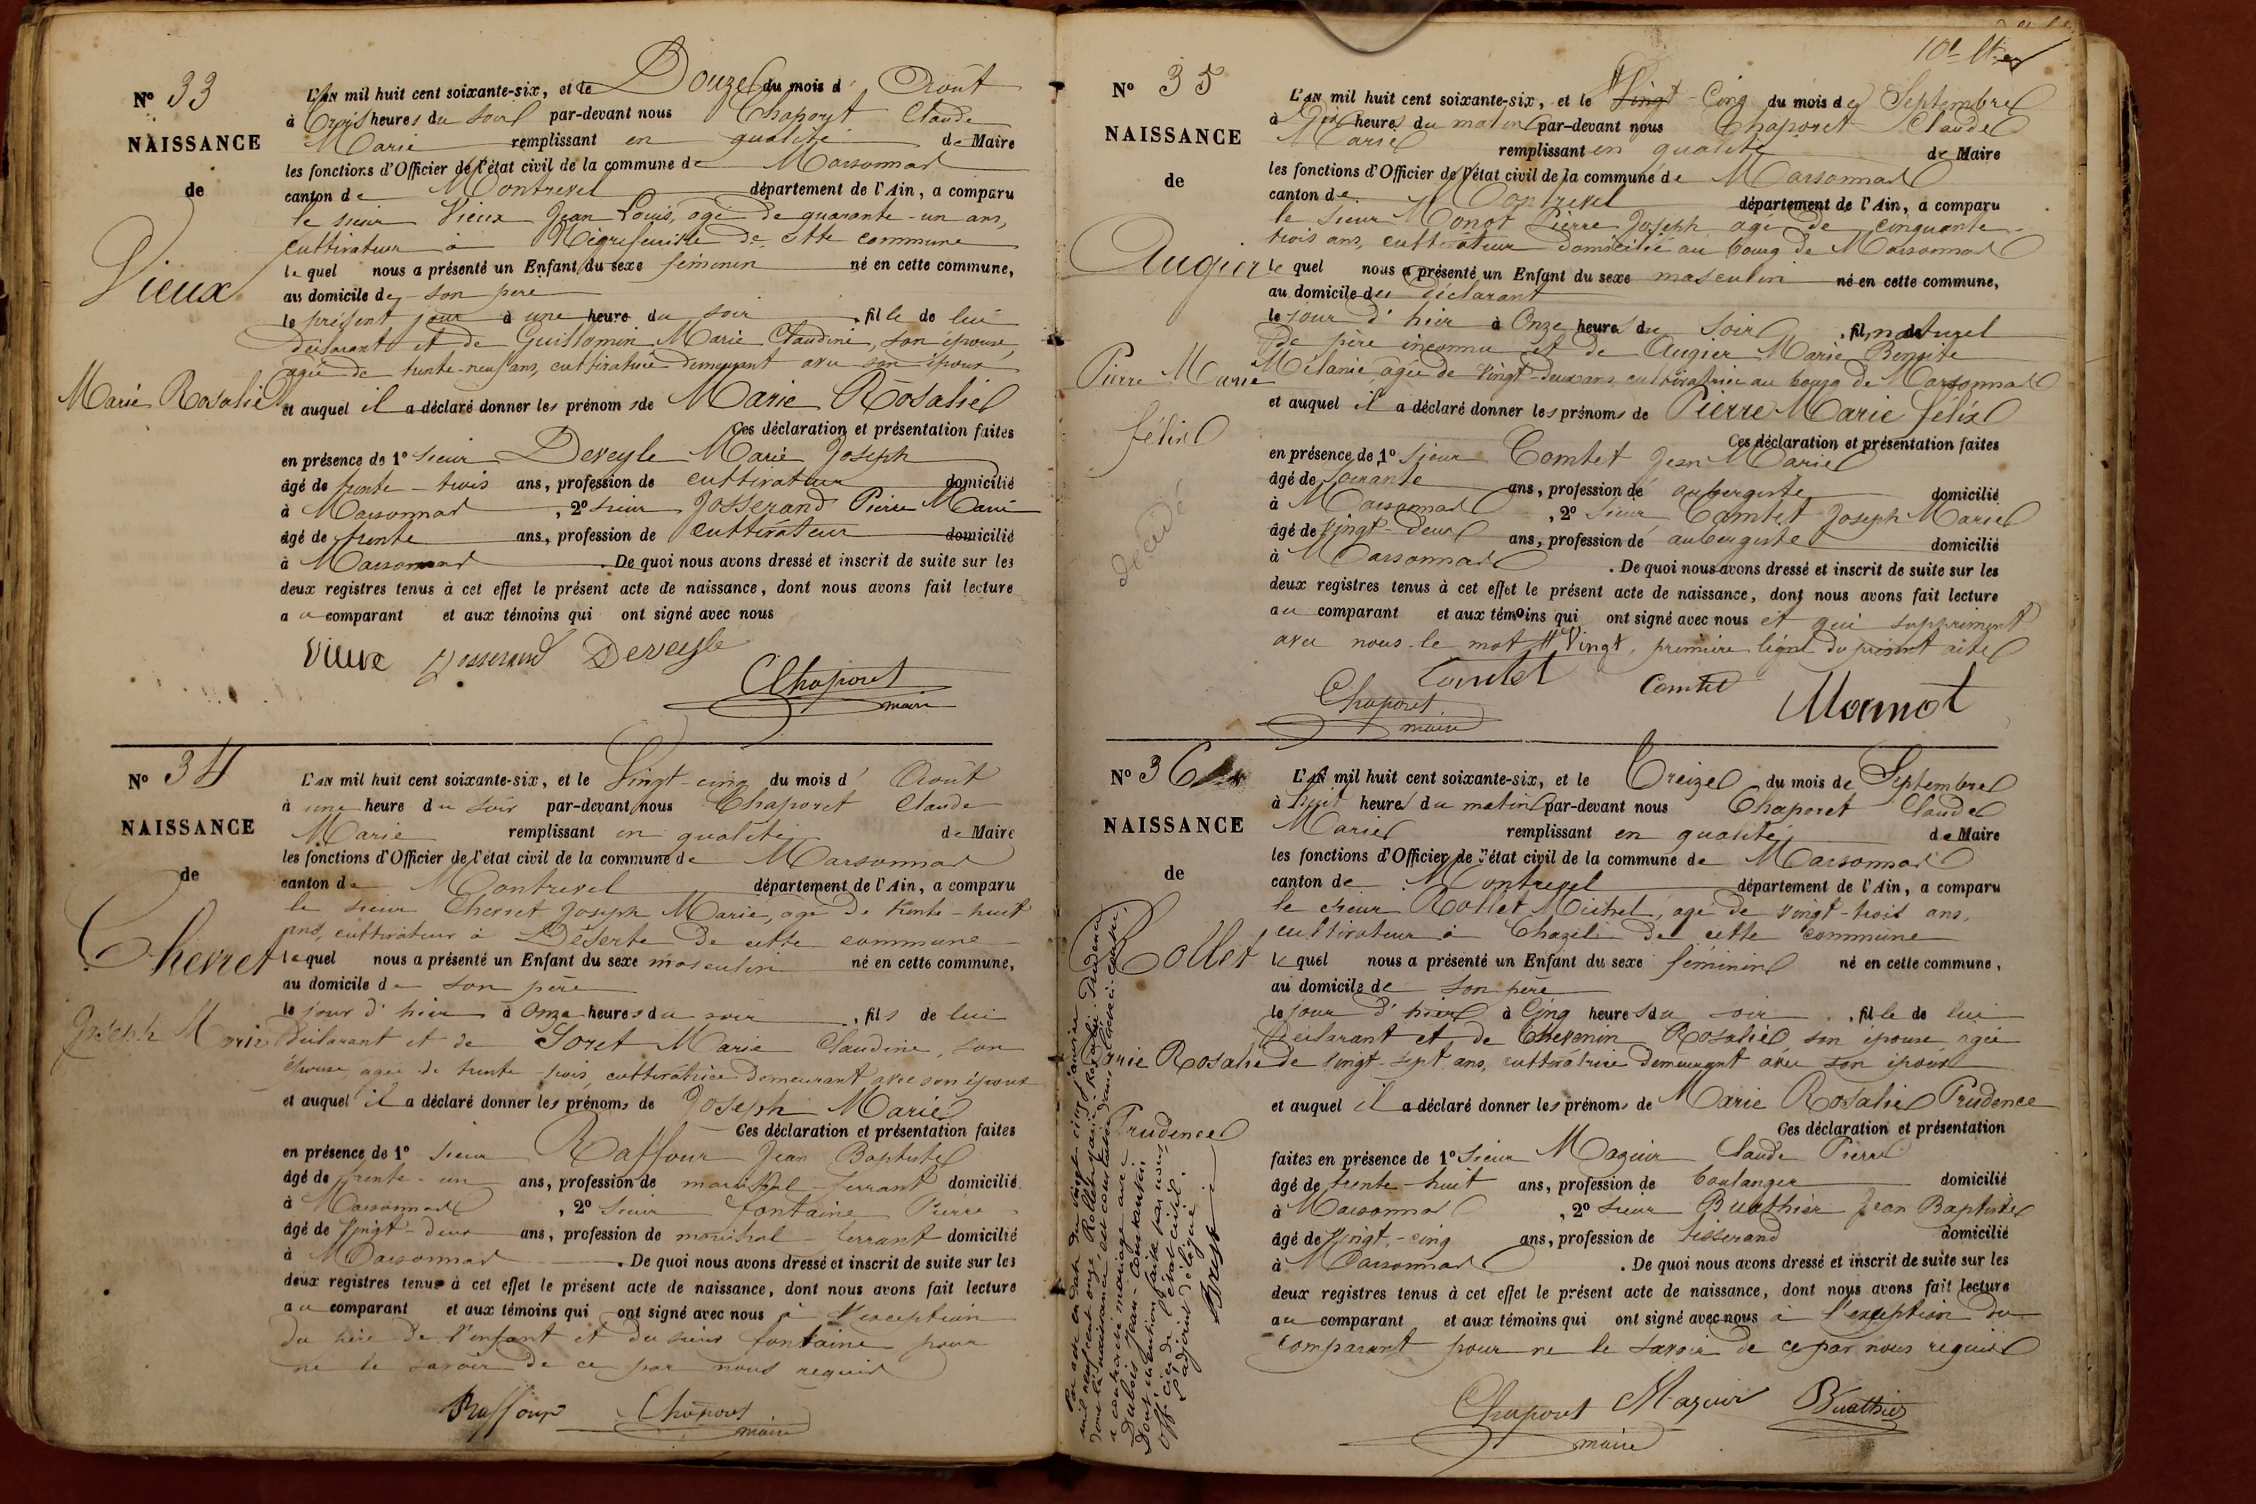 N° 33
NAISSANCE
de
Vieux
Marie Rosalie
L'AN mil huit cent soixante-six, et le Douze du mois d' Août
à trois heures du soir par-devant nous Chaporet Claude
Marie remplissant en qualité de Maire
les fonctions d'Officier de l'état civil de la commune de Marsonnas
canton de Montrevel département de l'Ain, a comparu
le sieur Vieux Jean Louis, agé de quarante-un ans,
cultivateur à de cette commune
lequel nous a présenté un Enfant du sexe féminin né en cette commune,
au domicile de son père
le présent jour à une heure du soir, fille de lui
déclarant et de Guillomin Marie Claudine, son épouse,
agée de trente-neuf ans, cultivatrice demeurant avec son époux
et auquel il a déclaré donner les prénoms de Marie Rosalie
Ces déclaration et présentation faites
en présence de 1° sieur Deveyle Marie Joseph
âgé de trente-trois ans, profession de cultivateur domicilié
à Marsonnas, 2° sieur Josserand Pierre Marie
âgé de trente ans, profession de cultivateur domicilié
à Marsonnas. De quoi nous avons dressé et inscrit de suite sur les
deux registres tenus à cet effet le présent acte de naissance, dont nous avons fait lecture
au comparant et aux témoins qui ont signé avec nous
Vieux Josserand Deveyle
Chaporet
maire
N° 34
NAISSANCE
de
Chevret
Joseph Marie
L'AN mil huit cent soixante-six, et le Vingt-cinq du mois d' Août
à une heure du soir par-devant nous Chaporet Claude
Marie remplissant en qualité de Maire
les fonctions d'Officier de l'état civil de la commune de Marsonnas
canton de Montrevel département de l'Ain, a comparu
le sieur Chevret Joseph Marie, âgé de trente-huit
ans, cultivateur à Déserte de cette commune
lequel nous a présenté un Enfant du sexe masculin né en cette commune,
au domicile de son père
le jour d'hier à onze heures du soir, fils de lui
déclarant et de Soret Marie Claudine, son
épouse, agée de trente-trois, cultivatrice demeurant avec son époux
et auquel il a déclaré donner les prénoms de Joseph Marie
Ces déclaration et présentation faites
en présence de 1° sieur Raffour Jean Baptiste
âgé de trente-un ans, profession de maréchal-ferrant domicilié
à Marsonnas, 2° sieur fontaine Pierre
âgé de vingt-deux ans, profession de maréchal-ferrant domicilié
à Marsonnas. De quoi nous avons dressé et inscrit de suite sur les
deux registres tenus à cet effet le présent acte de naissance, dont nous avons fait lecture
au comparant et aux témoins qui ont signé avec nous à l'exception
du père de l'enfant et du sieur fontaine pour
ne le savoir de ce par nous requis
Raffour Chaporet
maire
N° 35
NAISSANCE
de
Augier
Pierre Marie
félix
décédé
L'AN mil huit cent soixante-six, et le Vingt-Cinq du mois de Septembre
à Dix heures du matin par-devant nous Chaporet Claude
Marie remplissant en qualité de Maire
les fonctions d'Officier de l'état civil de la commune de Marsonnas
canton de Montrevel département de l'Ain, a comparu
le sieur Monot Pierre Joseph agé de cinquante-
trois ans, cultivateur domicilié au bourg de Marsonnas
lequel nous a présenté un Enfant du sexe masculin né en cette commune,
au domicile du déclarant
le jour d'hier à Onze heures du soir, fils naturel
de père inconnu et de Augier Marie Benoite
Mélanie, agée de vingt-deux ans, cultivatrice au bourg de Marsonnas
et auquel il a déclaré donner les prénoms de Pierre Marie félix
Ces déclaration et présentation faites
en présence de 1° sieur Comtet Jean Marie
âgé de soixante ans, profession de aubergiste domicilié
à Marsonnas, 2° sieur Comtet Joseph Marie
âgé de vingt-deux ans, profession de aubergiste domicilié
à Marsonnas. De quoi nous avons dressé et inscrit de suite sur les
deux registres tenus à cet effet le présent acte de naissance, dont nous avons fait lecture
au comparant et aux témoins qui ont signé avec nous et qui suppriment
avec nous le mot # Vingt, première ligne du présent acte
Comtet Comtet Monnot
Chaporet
maire
N° 36
NAISSANCE
de
Rollet
Marie Rosalie
Prudence
L'AN mil huit cent soixante-six, et le Treize du mois de Septembre
à huit heures du matin par-devant nous Chaporet Claude
Marie remplissant en qualité de Maire
les fonctions d'Officier de l'état civil de la commune de Marsonnas
canton de Montrevel département de l'Ain, a comparu
le sieur Rollet Michel, agé de vingt-trois ans,
cultivateur à Chazelle de cette commune
lequel nous a présenté un Enfant du sexe féminin né en cette commune,
au domicile de son père
le jour d'hier à Cinq heures du soir, fille de lui
déclarant et de Thevenin Rosalie, son épouse, agée
de vingt-sept ans, cultivatrice demeurant avec son époux
et auquel il a déclaré donner les prénoms de Marie Rosalie Prudence
Ces déclaration et présentation
faites en présence de 1° sieur Mazuir Claude Pierre
âgé de trente-huit ans, profession de boulanger domicilié
à Marsonnas, 2° sieur Buathier Jean Baptiste
âgé de vingt-cinq ans, profession de tisserand domicilié
à Marsonnas. De quoi nous avons dressé et inscrit de suite sur les
deux registres tenus à cet effet le présent acte de naissance, dont nous avons fait lecture
au comparant et aux témoins qui ont signé avec nous à l'exception du
comparant pour ne le savoir de ce par nous requis
Chaporet Mazuir Buathier
maire
Par acte en date du vingt cinq janvier
mil neuf cent onze Rollet Marie Rosalie Prudence
dont la naissance est constatée dans l'acte ci-contre
a contracté mariage avec
Dubois Jean-Constantin
Dont mention faite par nous
officier de l'état civil.
L'adjoint délégué